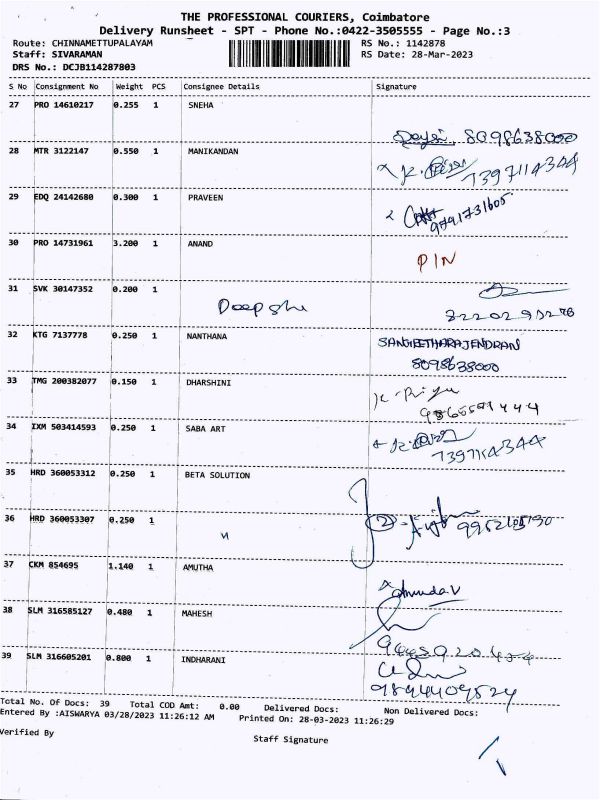 THE PROFESSIONAL COURIERS, Coimbatore
Delivery Runsheet - SPT - Phone No.:0422-3505555 - Page No.:3
Route: CHINNAMETTUPALAYAM RS No.: 1142878
Staff: SIVARAMAN RS Date: 28-Mar-2023
DRS No.: DCJB114287803
S No Consignment No Weight PCS Consignee Details Signature
27 PRO 14610217 0.255 1 SNEHA
8098638000
28 MTR 3122147 0.550 1 MANIKANDAN
7397114344
29 EDQ 24142680 0.300 1 PRAVEEN
9791731605
30 PRO 14731961 3.200 1 ANAND
PIN
31 SVK 30147352 0.200 1
Deepshi
32 KTG 7137778 0.250 1 NANTHANA SANGEETHARAJENDRAN
8098638000
33 TMG 200382077 0.150 1 DHARSHINI K. Priya
34 IXM 503414593 0.250 1 SABA ART
7397114344
35 HRD 360053312 0.250 1 BETA SOLUTION
36 HRD 360053307 0.250 1
37 CKM 854695 1.140 1 AMUTHA
38 SLM 316585127 0.480 1 MAHESH
39 SLM 316605201 0.800 1 INDHARANI
Total No. Of Docs: 39 Total COD Amt: 0.00 Delivered Docs: Non Delivered Docs:
Entered By :AISWARYA 03/28/2023 11:26:12 AM Printed On: 28-03-2023 11:26:29
Verified By Staff Signature